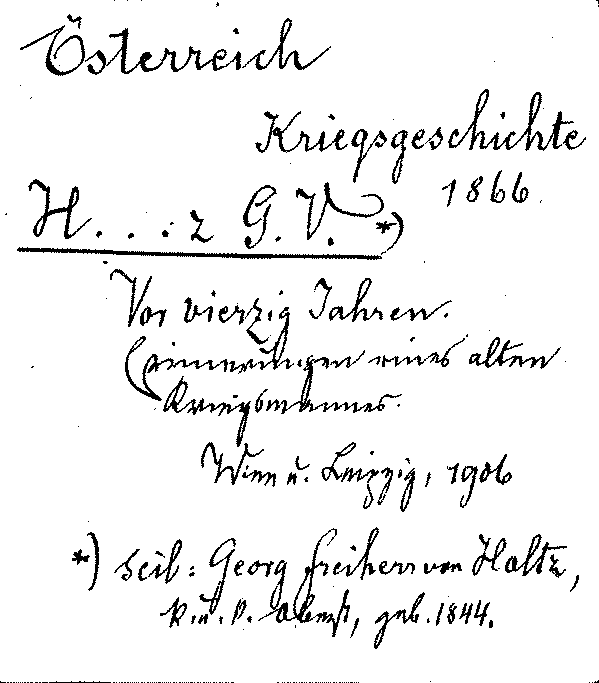 Österreich
Kriegsgeschichte
1866.
H. . . : z G. V. *)
Vor vierzig Jahren.
Erinnerungen eines alten
Kriegsmannes.
Wien u. Leipzig, 1906
*) scil: Georg Freiherr von Holtz,
k. u. k. Oberst, geb. 1844.